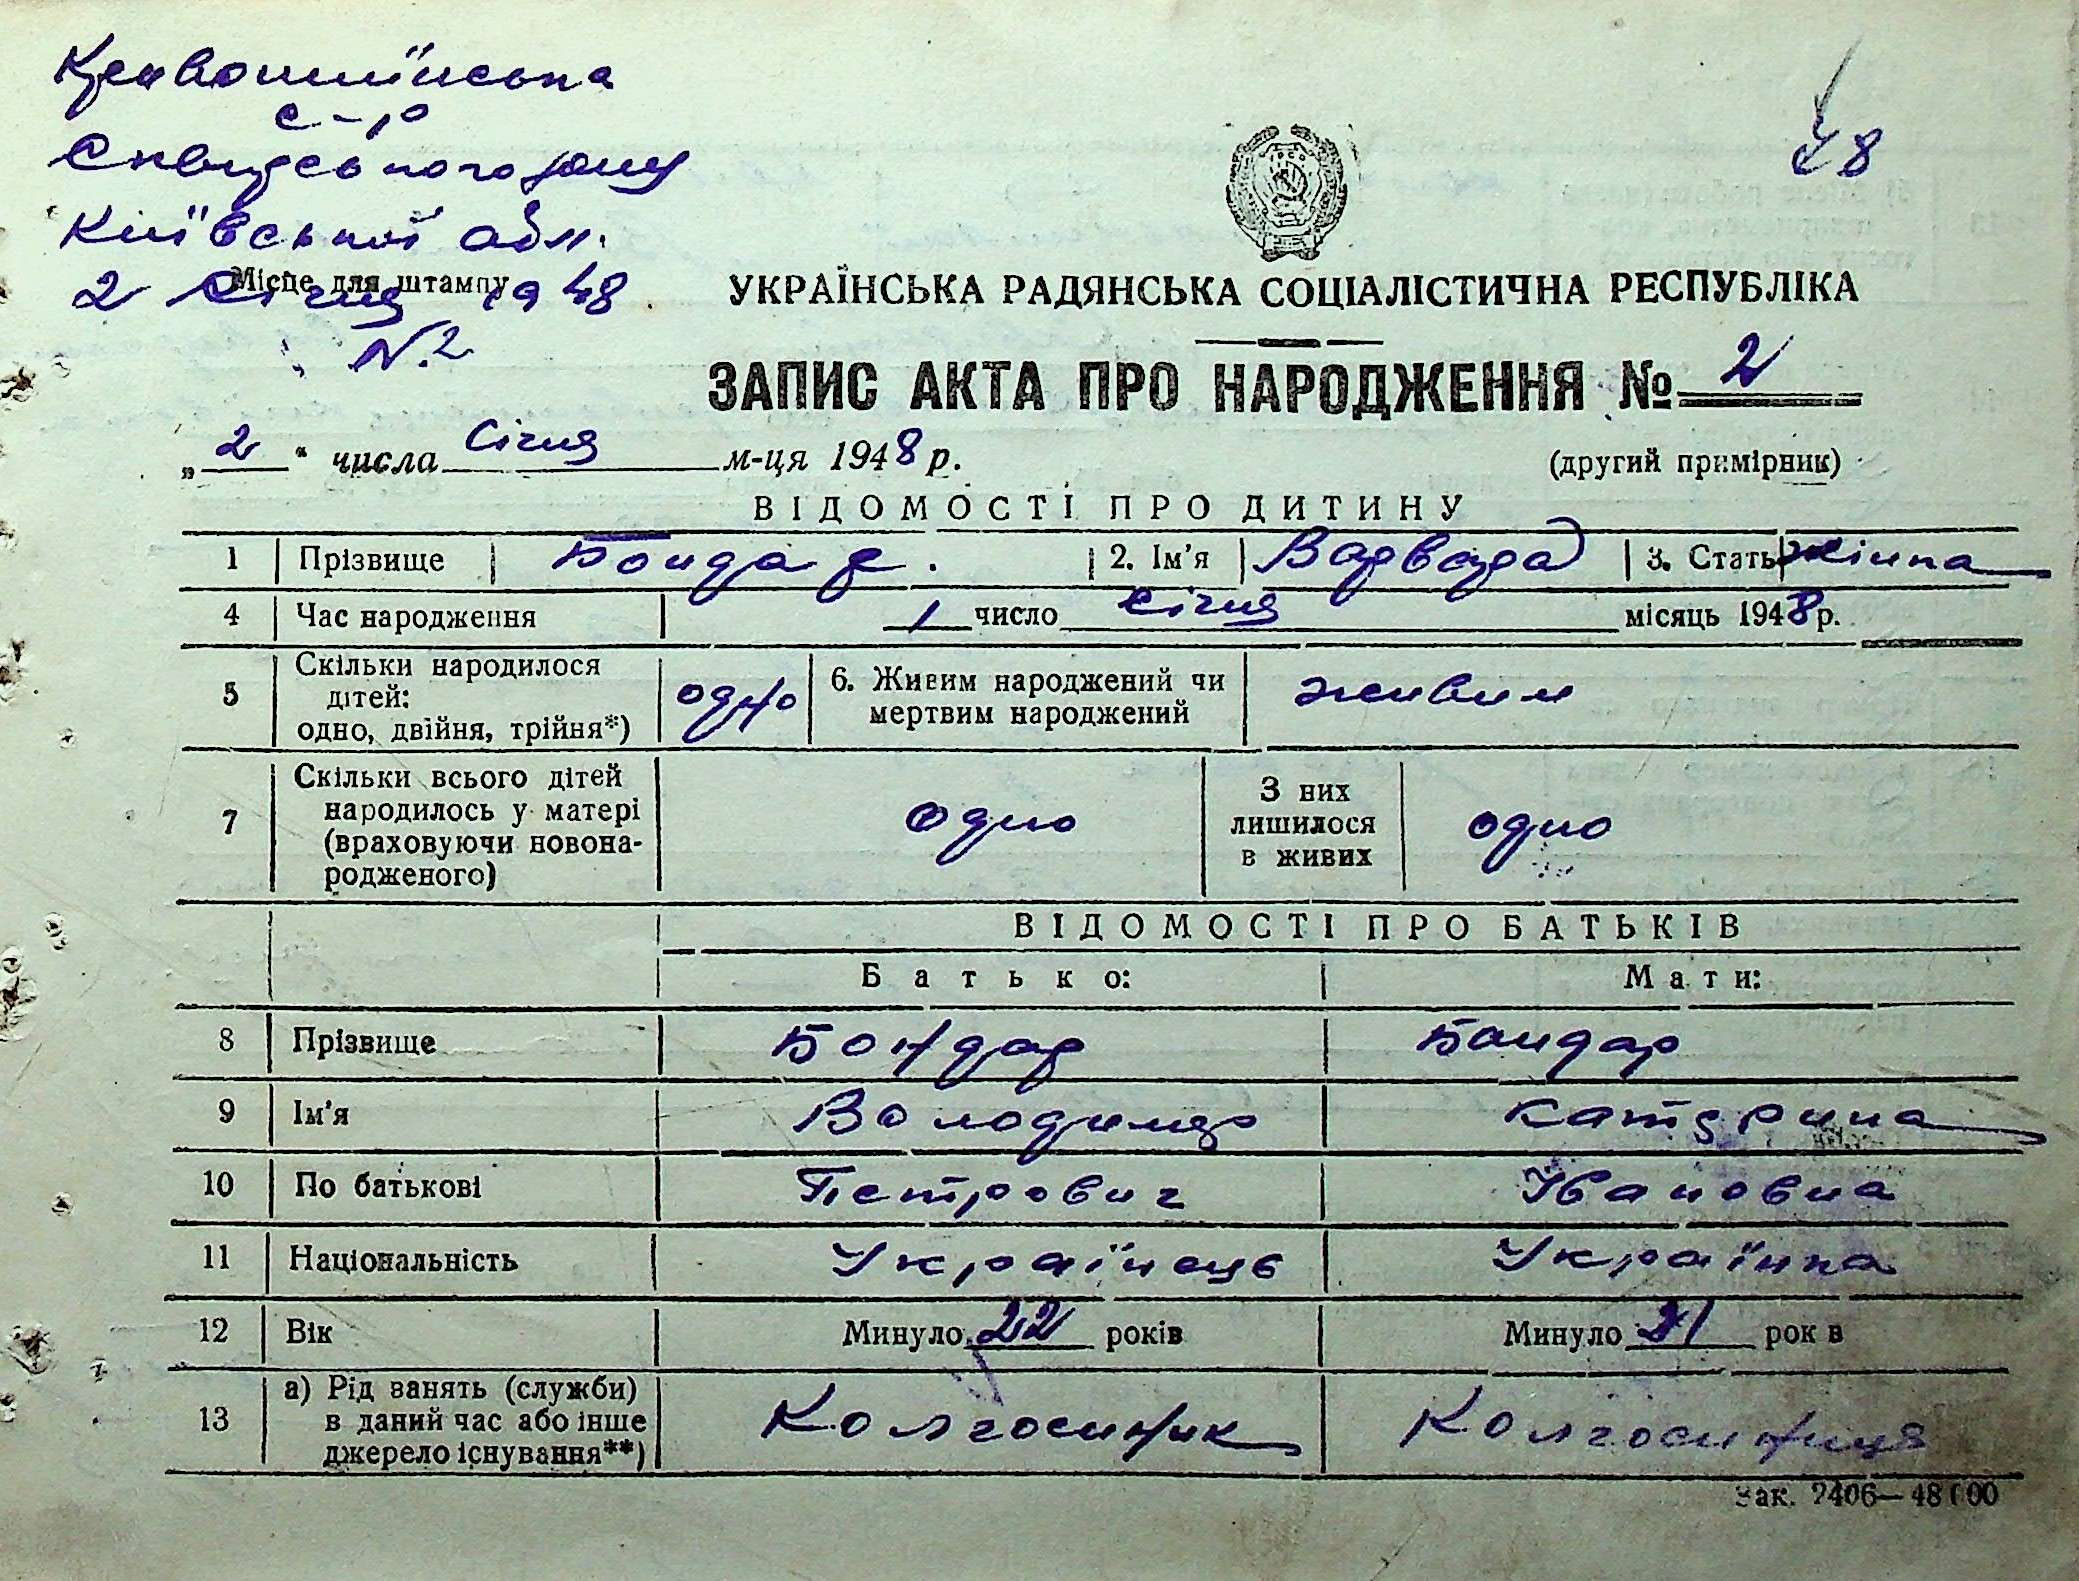 Кривошиїнська
с-р
Сквирського р-ну
Київської обл.
Місце для штампу
2 Січня 1948
N. 2
48
УКРАЇНСЬКА РАДЯНСЬКА СОЦІАЛІСТИЧНА РЕСПУБЛІКА
ЗАПИС АКТА ПРО НАРОДЖЕННЯ № 2
„2“ числа Січня м-ця 1948 р.
(другий примірник)
ВІДОМОСТІ ПРО ДИТИНУ
1 Прізвище Бондар. 2. Ім'я Варвара 3. Стать жінка
4 Час народження 1 число Січня місяць 1948 р.
5 Скільки народилося дітей: одно, двійня, трійня*) одно 6. Живим народжений чи мертвим народжений живим
7 Скільки всього дітей народилось у матері (враховуючи новонародженого) одно З них лишилося в живих одно
ВІДОМОСТІ ПРО БАТЬКІВ
Батько: Мати:
8 Прізвище Бондар Бондар
9 Ім'я Володимир Катерина
10 По батькові Петрович Івановна
11 Національність Українець Українка
12 Вік Минуло 22 років Минуло 21 рок в
13 а) Рід занять (служби) в даний час або інше джерело існування**) Колгоспник Колгоспниця
Зак. 2406—48000